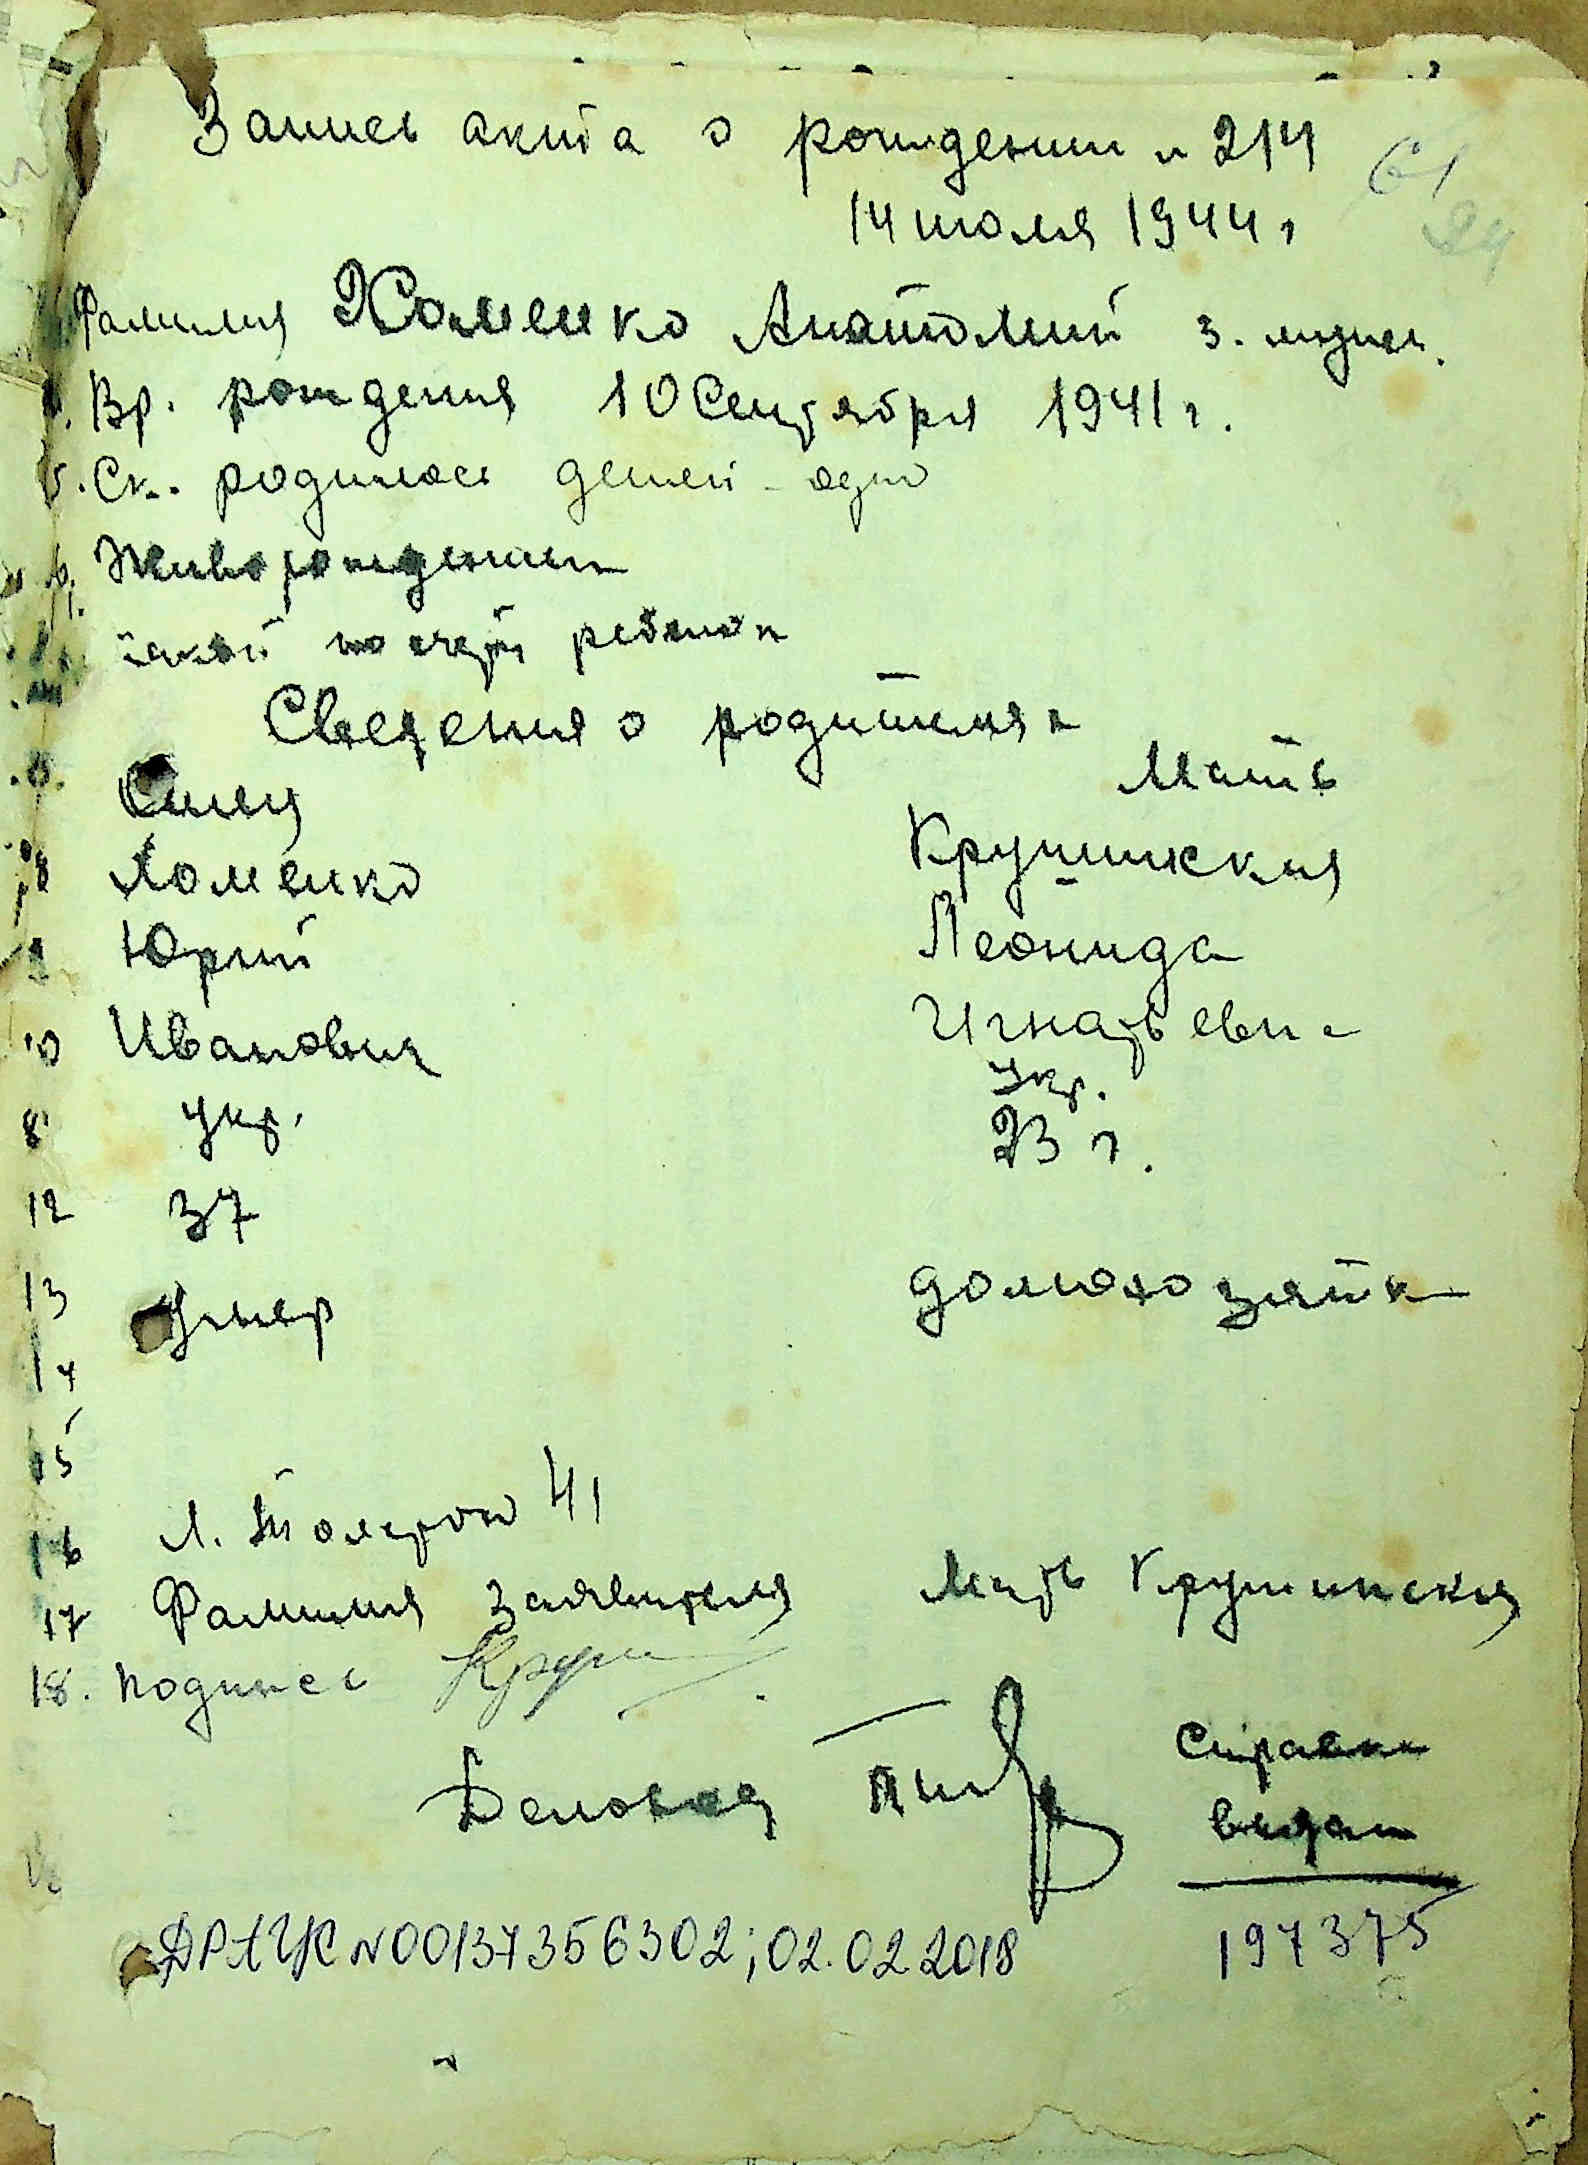 Запись акта о рождении н 214
14 июля 1944 г
61
24
Фамилия Хоменко Анатолий 3. мужск.
Вр. рождения 10 Сентября 1941 г.
5. Ск. родилось детей - одно
6. Живорожденных
какой по счету ребенок
Сведения о родителях
Отец Мать
8 Хоменко Крушинская
9 Юрий Леонида
10 Иванович Игнатьевна
8 укр. укр.
12 37 23 г.
13 Умер домохозяйка
14
15
16 Л. Толстого 41
17 Фамилия Заявителя Мать Крушинская
18. подпись Круш
Деловод
Справка
выдан
ДРАЦС N 00137356302; 02.02.2018 197375